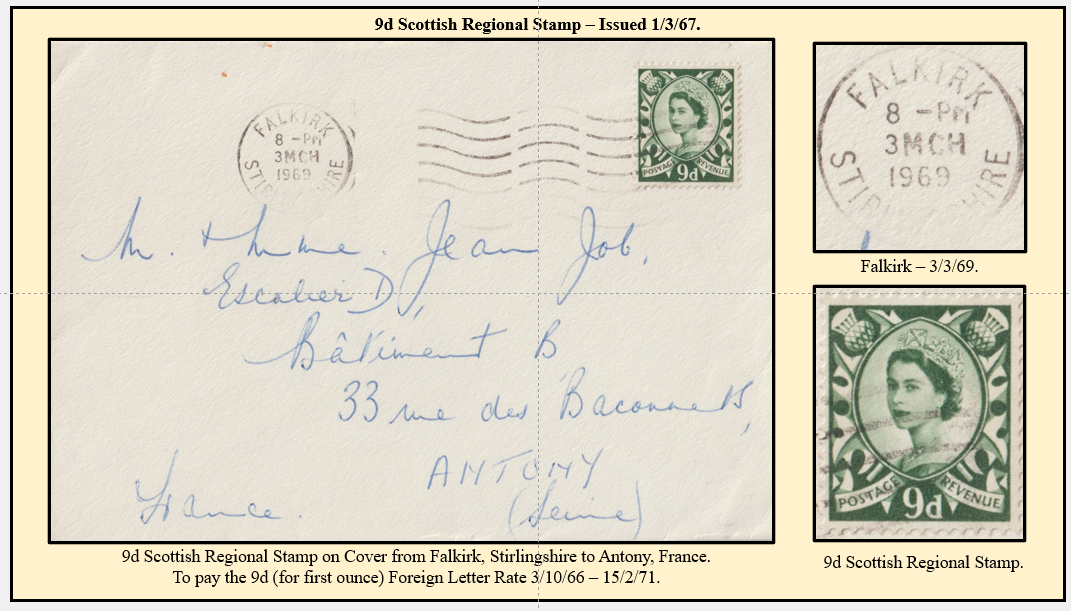 9d Scottish Regional Stamp – Issued 1/3/67.
FALKIRK
8 - PM
3 MCH
1969
STIR HIRE
POSTAGE REVENUE
9d
M. + Mme. Jean Job,
Escalier D,
Bâtiment B
33 rue des Baconnets,
ANTONY
(Seine)
France.
9d Scottish Regional Stamp on Cover from Falkirk, Stirlingshire to Antony, France.
To pay the 9d (for first ounce) Foreign Letter Rate 3/10/66 – 15/2/71.
FALKIRK
8 - PM
3 MCH
1969
STIR HIRE
Falkirk – 3/3/69.
POSTAGE REVENUE
9d
9d Scottish Regional Stamp.